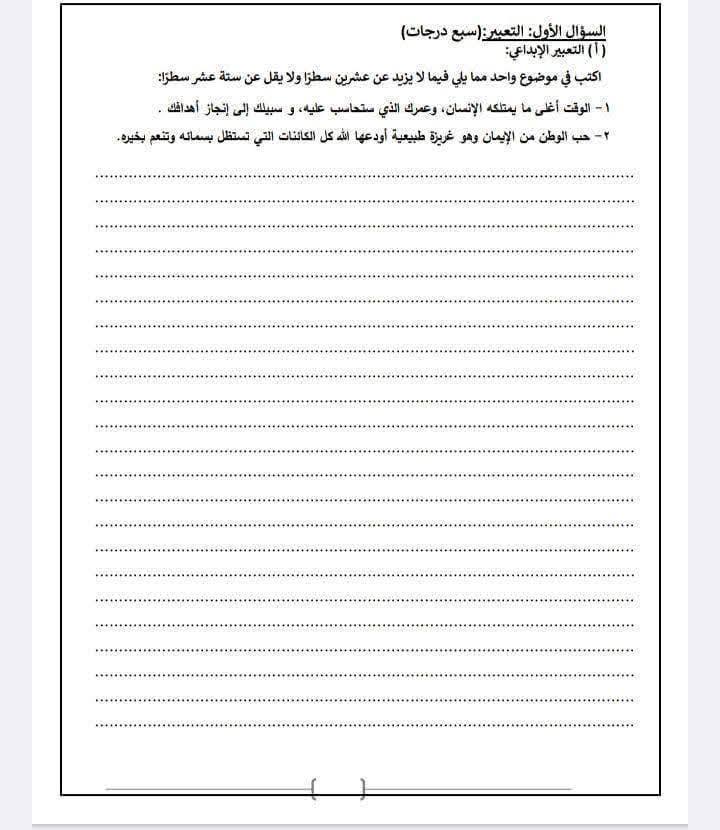 السؤال الأول: التعبير:(سبع درجات)
( أ ) التعبير الإبداعي:
اكتب في موضوع واحد مما يلي فيما لا يزيد عن عشرين سطرًا ولا يقل عن ستة عشر سطرًا:
١- الوقت أغلى ما يمتلكه الإنسان، وعمرك الذي ستحاسب عليه، و سبيلك إلى إنجاز أهدافك .
٢- حب الوطن من الإيمان وهو غريزة طبيعية أودعها الله كل الكائنات التي تستظل بسمائه وتنعم بخيره.